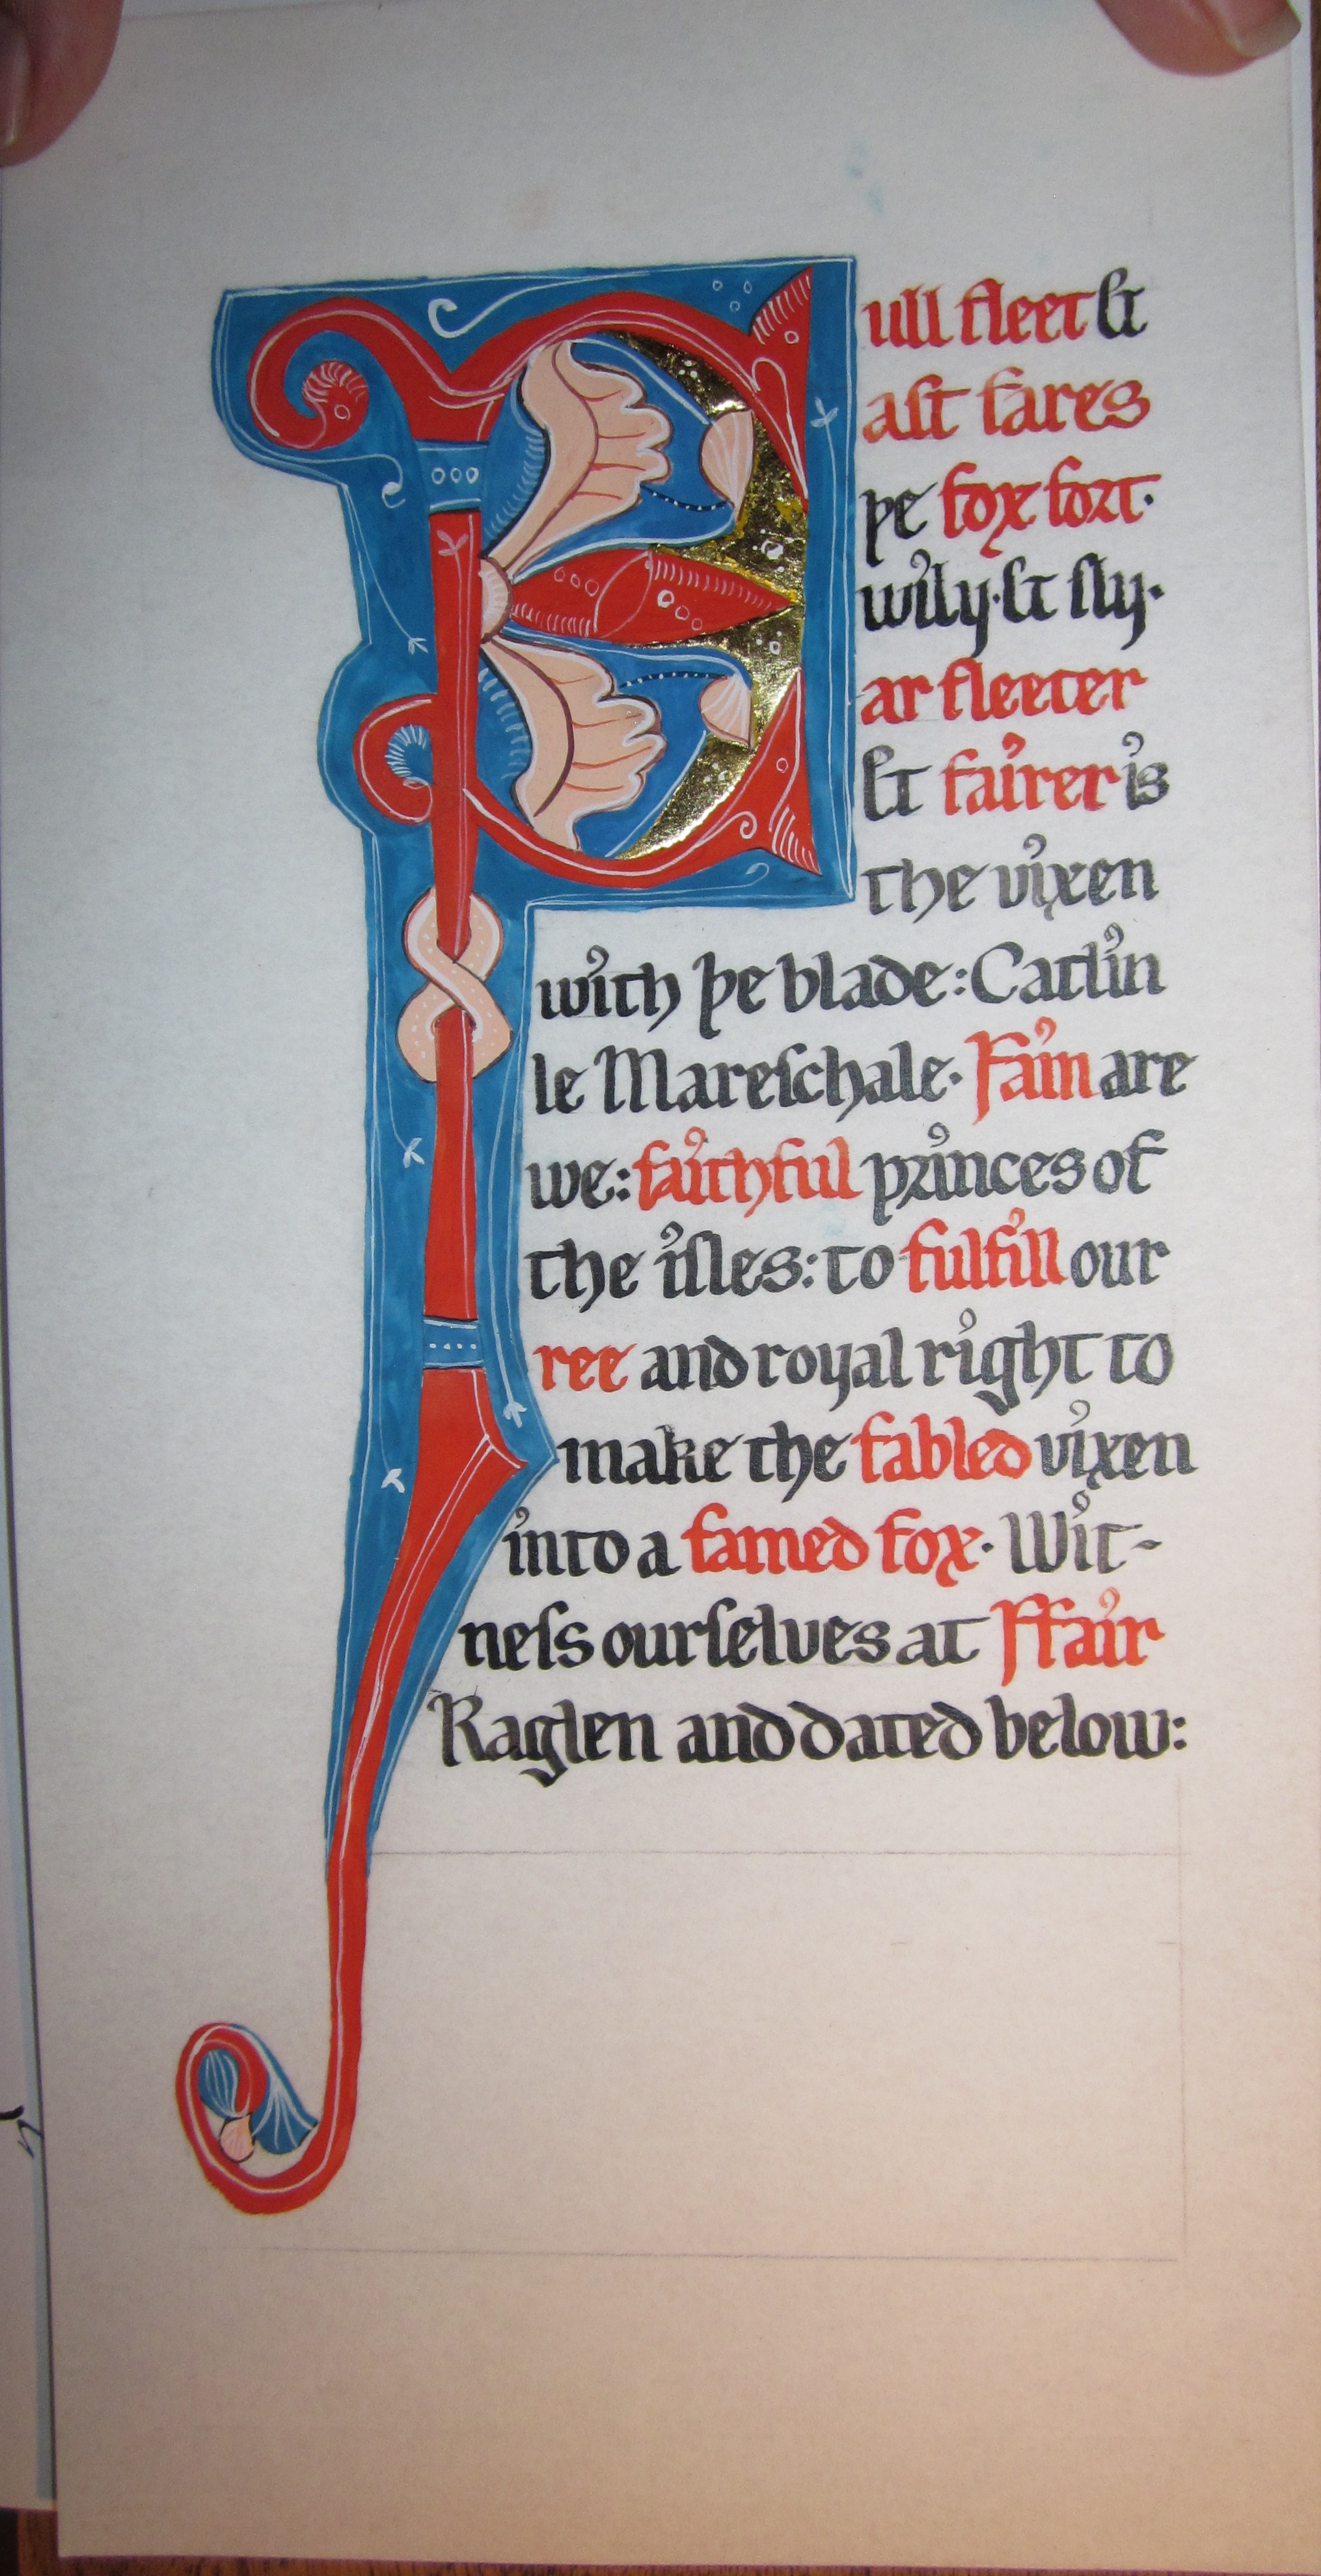 Full fleet &
aſt fares
þe fox fort·
wily·& ſly·
ar fleeter
& fairer is
the vixen
with þe blade: Catlin
le Mareſchale· Fain are
we: faithful princes of
the iſles: to fulfill our
ree and royal right to
make the fabled vixen
into a famed fox· Wit-
neſs ourſelves at Ffair
Raglen and dated below: